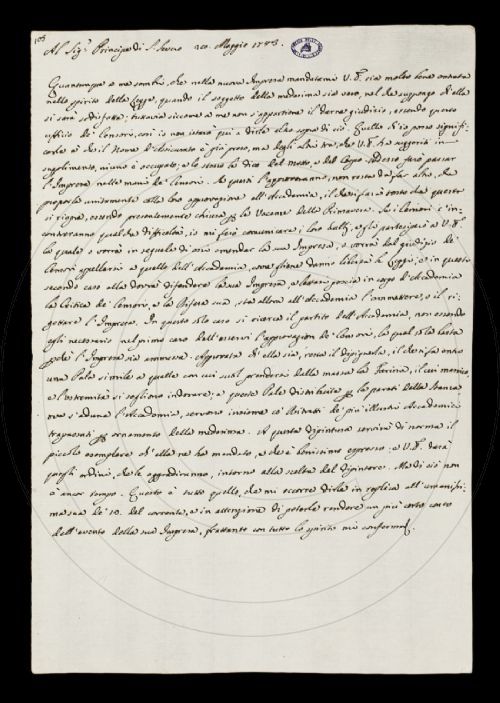 105
Al Sig.r Principe di S. Severo 20. Maggio 1743.
Quantunque a me sembri, che nella nuova Impresa mandatami V. E. sia molto bene entrata
nello spirito della Legge, quando il soggetto della medesima sia vero, nel che suppongo ch'ella
si sarà sodisfatta; tuttavia siccome a me non s'appartiene il darne giudizio, essendo questo
ufficio de' Censori, così io non istarò più a dirle altro sopra di ciò. Quello ch'io posso signifi-
carle è che il Nome d' è già preso, ma degli altri tre, che V. E. ha suggeriti in
supplimento, niuno è occupato, e lo stesso le dico del Motto, e del Corpo. Adesso farò passar
l'Impresa nelle mani de' Censori. Se questi l'approveranno, non resta da far altro, che
proporla unitamente colla loro approvazione all'Accademia, il che si farà tosto che questa
si riapra, essendo presentemente chiusa per le Vacanze della Primavera. Se i Censori c'in-
contreranno qualche difficoltà, io mi farò comunicare i loro dubbj, e gli parteciperò a V. E.
la quale o vorrà in sequela di essi emendar la sua Impresa, o vorrà dal giudizio de'
Censori appellarsi a quello dell'Accademia, come fanno danno libertà le Leggi; e in questo
secondo caso ella dovrà difendere la sua Impresa, e letta poscia in corpo d'Accademia
la Critica de' Censori, e la Difesa sua, starà allora all'Accademia l'ammettere, o il ri-
gettare l'Impresa. In questo caso si ricerca il partito dell'Accademia, non essendo
egli necessario nel primo caso dell'esservi l'approvazion de' Censori, la qual sola basta
perchè l'Impresa sia ammessa. Approvata ch'ella sia, resta il dipignerla, il che si fa entro
una Pala simile a quelle con cui suol prendersi dalla massa la Farina, il cui manico,
e l'estremità si sogliono indorare; e queste Pale distribuite per le pareti della Stanza
ove s'aduna l'Accademia, servono insieme co' Ritratti de' più illustri Accademici
trapassati per ornamento della medesima. A questa dipintura servirà di norma il
piccolo esemplare ch'ella ne ha mandato, e che è benissimo espresso; e V. E. darà
quegli ordini, che le aggradiranno, intorno alla scelta del dipintore. Ma di ciò non
è ancor tempo. Questo è tutto quello, che mi occorre dirle in replica all'umanissi-
ma sua de' 10. del corrente, e in attenzione di poterle rendere un più certo conto
dell'evento della sua Impresa, frattanto con tutto lo spirito mi confermo.